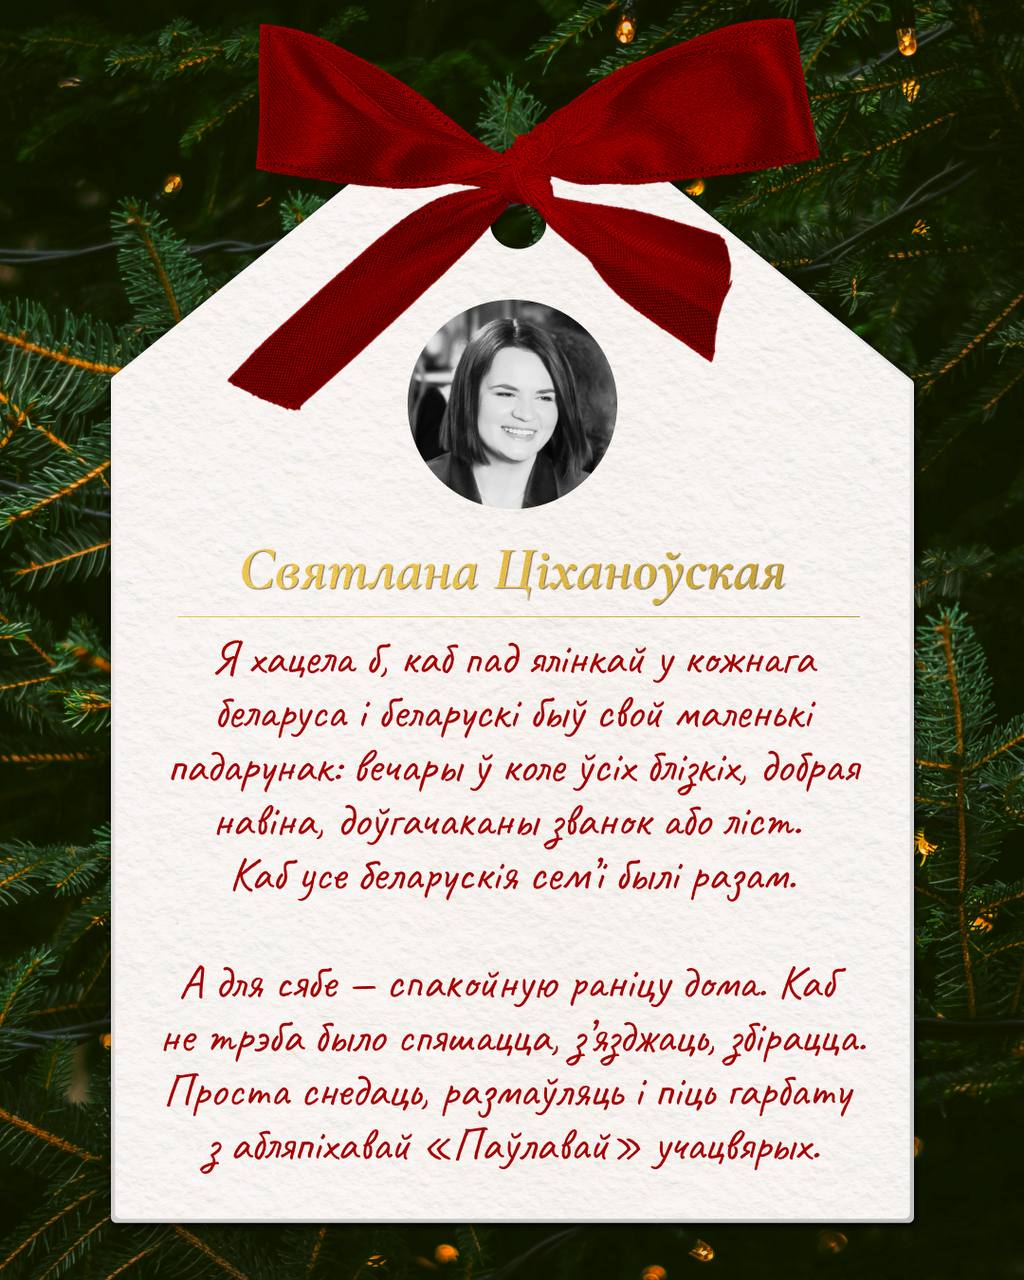 Святлана Ціханоўская
Я хацела б, каб пад ялінкай у кожнага
беларуса і беларускі быў свой маленькі
падарунак: вечары ў коле ўсіх блізкіх, добрая
навіна, доўгачаканы званок або ліст.
Каб усе беларускія сем’і былі разам.
А для сябе — спакойную раніцу дома. Каб
не трэба было спяшацца, з’язджаць, збірацца.
Проста снедаць, размаўляць і піць гарбату
з абляпіхавай «Паўлавай» учацвярых.